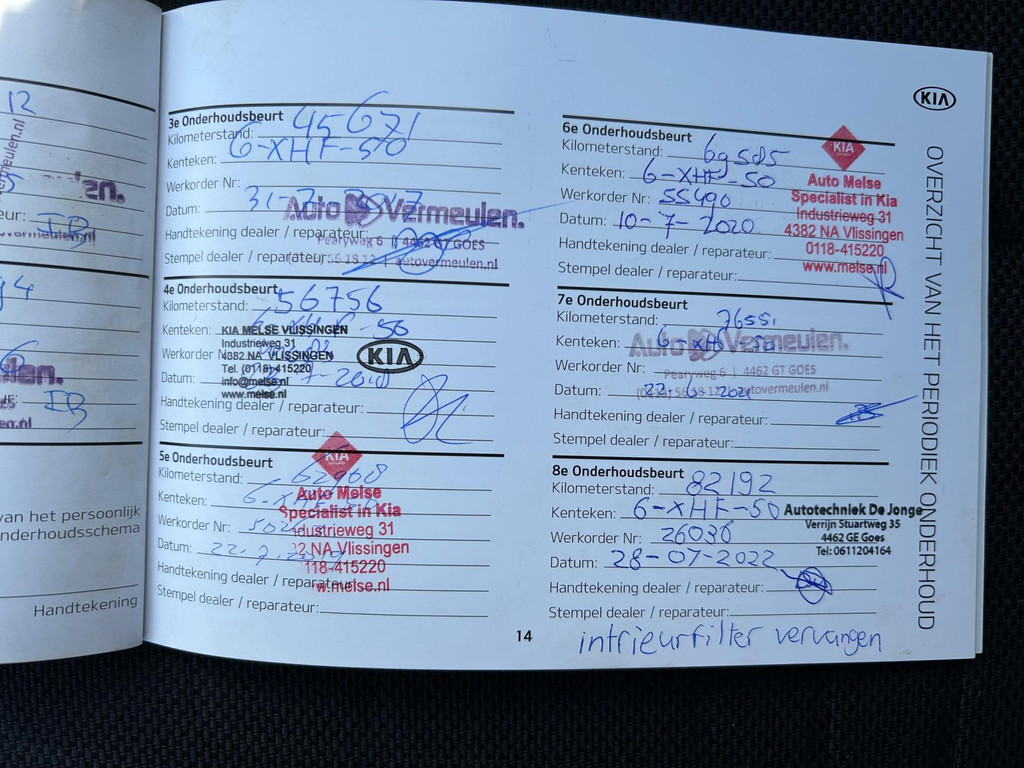 12
zen.
IB
94
IB
van het persoonlijk
nderhoudsschema
Handtekening
3e Onderhoudsbeurt
Kilometerstand: 45671
Kenteken: 6-XHF-50
Werkorder Nr:
Datum: 31-7-2017
Auto Vermeulen.
Handtekening dealer / reparateur:
Pearyweg 6 | 4462 GT GOES
Stempel dealer / reparateur:
autovermeulen.nl
4e Onderhoudsbeurt
Kilometerstand: 56756
Kenteken: 6-XHF-50
KIA MELSE VLISSINGEN
Industrieweg 31
Werkorder N
4382 NA VLISSINGEN
KIA
Tel. (0118) 415220
Datum:
info@melse.nl
www.melse.nl
Handtekening dealer / reparateur:
Stempel dealer / reparateur:
5e Onderhoudsbeurt
KIA
Kilometerstand: 62968
Kenteken: 6-XHF-50
Auto Melse
Specialist in Kia
Werkorder Nr:
Industrieweg 31
Datum: 22-7-2019
2 NA Vlissingen
118-415220
Handtekening dealer / reparateur:
w.melse.nl
Stempel dealer / reparateur:
14
KIA
6e Onderhoudsbeurt
Kilometerstand: 69585
KIA
Kenteken: 6-XHF-50
Auto Melse
Specialist in Kia
Werkorder Nr: 55490
Industrieweg 31
Datum: 10-7-2020
4382 NA Vlissingen
0118-415220
Handtekening dealer / reparateur:
www.melse.nl
Stempel dealer / reparateur:
7e Onderhoudsbeurt
Kilometerstand: 76551
Kenteken: 6-XHF-50
Auto Vermeulen.
Werkorder Nr:
Pearyweg 6 | 4462 GT GOES
Datum: 22-6-2021
autovermeulen.nl
Handtekening dealer / reparateur:
Stempel dealer / reparateur:
8e Onderhoudsbeurt
Kilometerstand: 82192
Kenteken: 6-XHF-50
Autotechniek De Jonge
Verrijn Stuartweg 35
Werkorder Nr: 26036
4462 GE Goes
Tel: 0611204164
Datum: 28-07-2022
Handtekening dealer / reparateur:
Stempel dealer / reparateur:
intrieurfilter vervangen
OVERZICHT VAN HET PERIODIEK ONDERHOUD